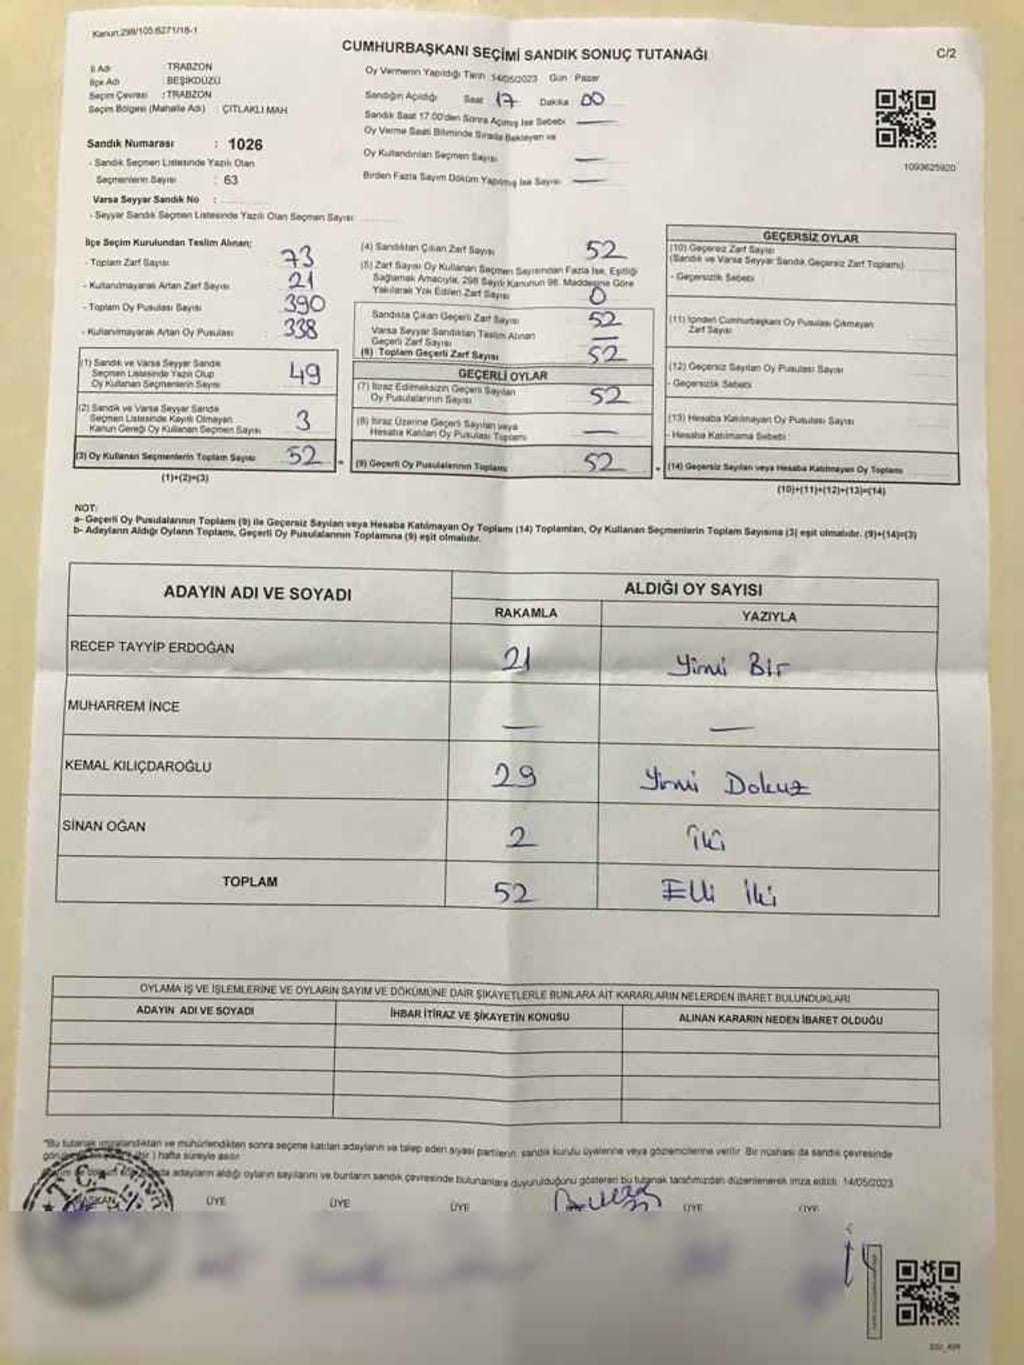 Kanun:298/105:6271/18-1
CUMHURBAŞKANI SEÇİMİ SANDIK SONUÇ TUTANAĞI
C/2
İl Adı : TRABZON
İlçe Adı : BEŞİKDÜZÜ
Seçim Çevresi : TRABZON
Seçim Bölgesi (Mahalle Adı) : ÇITLAKLI MAH
Sandık Numarası : 1026
- Sandık Seçmen Listesinde Yazılı Olan
Seçmenlerin Sayısı : 63
Varsa Seyyar Sandık No :
- Seyyar Sandık Seçmen Listesinde Yazılı Olan Seçmen Sayısı
Oy Vermenin Yapıldığı Tarih 14/05/2023 Gün : Pazar
Sandığın Açıldığı Saat 17 Dakika 00
Sandık Saat 17.00'den Sonra Açılmış İse Sebebi —
Oy Verme Saati Bitiminde Sırada Bekleyen ve
Oy Kullandırılan Seçmen Sayısı —
Birden Fazla Sayım Döküm Yapılmış İse Sayısı —
1093625920
İlçe Seçim Kurulundan Teslim Alınan;
- Toplam Zarf Sayısı 73
- Kullanılmayarak Artan Zarf Sayısı 21
- Toplam Oy Pusulası Sayısı 390
- Kullanılmayarak Artan Oy Pusulası 338
(1) Sandık ve Varsa Seyyar Sandık
Seçmen Listesinde Yazılı Olup
Oy Kullanan Seçmenlerin Sayısı 49
(2) Sandık ve Varsa Seyyar Sandık
Seçmen Listesinde Kayıtlı Olmayan
Kanun Gereği Oy Kullanan Seçmen Sayısı 3
(3) Oy Kullanan Seçmenlerin Toplam Sayısı 52
(1)+(2)=(3)
(4) Sandıktan Çıkan Zarf Sayısı 52
(5) Zarf Sayısı Oy Kullanan Seçmen Sayısından Fazla İse, Eşitliği
Sağlamak Amacıyla, 298 Sayılı Kanunun 98. Maddesine Göre
Yakılarak Yok Edilen Zarf Sayısı 0
Sandıkta Çıkan Geçerli Zarf Sayısı 52
Varsa Seyyar Sandıktan Teslim Alınan
Geçerli Zarf Sayısı —
(6) Toplam Geçerli Zarf Sayısı 52
GEÇERLİ OYLAR
(7) İtiraz Edilmeksizin Geçerli Sayılan
Oy Pusulalarının Sayısı 52
(8) İtiraz Üzerine Geçerli Sayılan veya
Hesaba Katılan Oy Pusulası Toplamı —
= (9) Geçerli Oy Pusulalarının Toplamı 52
GEÇERSİZ OYLAR
(10) Geçersiz Zarf Sayısı
(Sandık ve Varsa Seyyar Sandık Geçersiz Zarf Toplamı)
- Geçersizlik Sebebi :
(11) İçinden Cumhurbaşkanı Oy Pusulası Çıkmayan
Zarf Sayısı
(12) Geçersiz Sayılan Oy Pusulası Sayısı
- Geçersizlik Sebebi
(13) Hesaba Katılmayan Oy Pusulası Sayısı
- Hesaba Katılmama Sebebi :
+ (14) Geçersiz Sayılan veya Hesaba Katılmayan Oy Toplamı
(10)+(11)+(12)+(13)=(14)
NOT:
a- Geçerli Oy Pusulalarının Toplamı (9) ile Geçersiz Sayılan veya Hesaba Katılmayan Oy Toplamı (14) Toplamları, Oy Kullanan Seçmenlerin Toplam Sayısına (3) eşit olmalıdır. (9)+(14)=(3)
b- Adayların Aldığı Oyların Toplamı, Geçerli Oy Pusulalarının Toplamına (9) eşit olmalıdır.
ADAYIN ADI VE SOYADI
ALDIĞI OY SAYISI
RAKAMLA YAZIYLA
RECEP TAYYİP ERDOĞAN 21 Yirmi Bir
MUHARREM İNCE — —
KEMAL KILIÇDAROĞLU 29 Yirmi Dokuz
SİNAN OĞAN 2 İki
TOPLAM 52 Elli İki
OYLAMA İŞ VE İŞLEMLERİNE VE OYLARIN SAYIM VE DÖKÜMÜNE DAİR ŞİKAYETLERLE BUNLARA AİT KARARLARIN NELERDEN İBARET BULUNDUKLARI
ADAYIN ADI VE SOYADI İHBAR İTİRAZ VE ŞİKAYETİN KONUSU ALINAN KARARIN NEDEN İBARET OLDUĞU
*Bu tutanak imzalandıktan ve mühürlendikten sonra seçime katılan adayların ve talep eden siyasi partilerin, sandık kurulu üyelerine veya gözlemcilerine verilir. Bir nüshası da sandık çevresinde
bir ) hafta süreyle asılır.
adayların aldığı oyların sayılarını ve bunların sandık çevresinde bulunanlara duyurulduğunu gösteren bu tutanak tarafımızdan düzenlenerek imza edildi. 14/05/2023
T.C.
BAŞKAN ÜYE ÜYE ÜYE ÜYE ÜYE